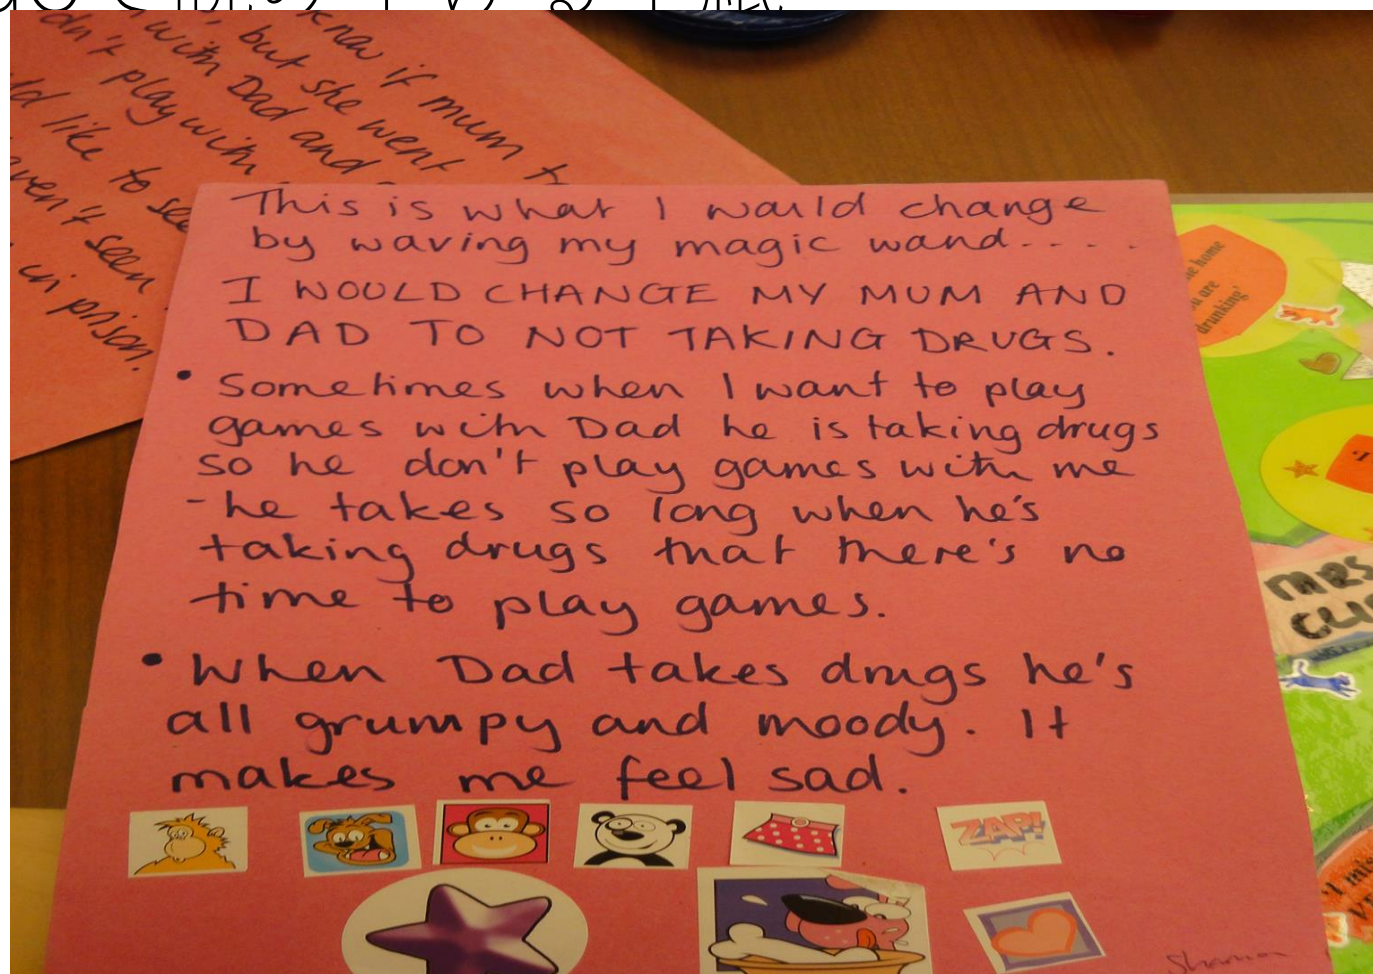 know if mum
but she went
with Dad and
dn't play with
ld like to see
aven't seen
in prison.
This is what I would change
by waving my magic wand....
I WOULD CHANGE MY MUM AND
DAD TO NOT TAKING DRUGS.
• Sometimes when I want to play
games with Dad he is taking drugs
so he don't play games with me
- he takes so long when he's
taking drugs that there's no
time to play games.
• When Dad takes drugs he's
all grumpy and moody. It
makes me feel sad.
ZAP!
home
are
drunking'
MRS